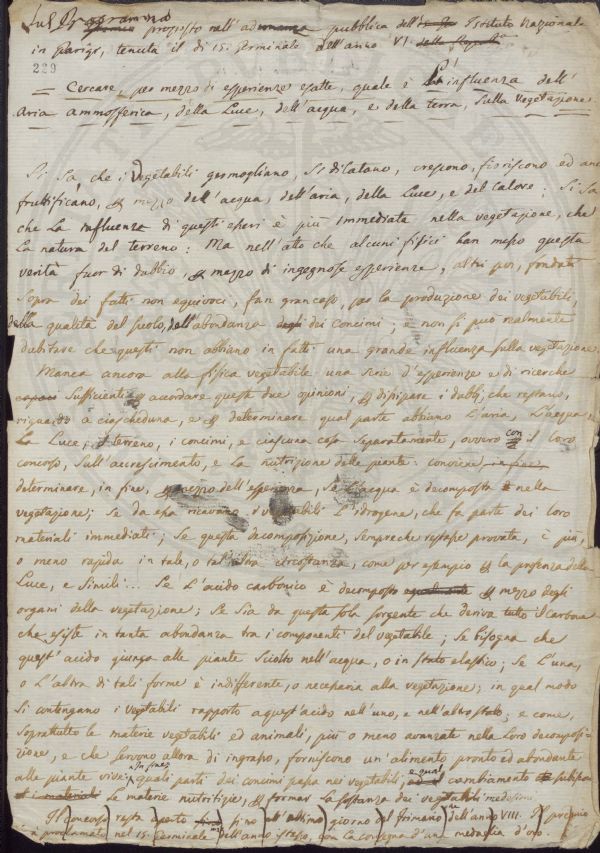 Sul Programma
proposto nell'adunanza pubblica dell' Istituto Nazionale
in Parigi, tenuta il dì 15. Germinale dell'anno VI.
229
= Cercare, per mezzo di esperienze esatte, quale è L'influenza dell'
Aria ammosferica, della Luce, dell'acqua, e della terra, sulla vegetazione
Si sà che i Vegetabili germogliano, si dilatano, crescono, fioriscono ed anc
fruttificano, p mezzo dell'acqua, dell'aria, della Luce, e del Calore: Si sa
che La influenza di questi esseri è più immediata nella vegetazione, che
La natura del terreno: Ma nell'atto che alcuni fisici han messo questa
verità fuor di dubbio, p mezzo di ingegnose esperienze, altri poi, fondati
Sopra dei fatti non equivoci, fan gran caso, per la produzione dei vegetabili,
della qualità del suolo, dell'abondanza dei concimi; e non si può realmente
dubitare che questi non abbiano in fatti una grande influenza sulla vegetazione.
Manca ancora alla fisica vegetabile una serie d'esperienze e di ricerche
Sufficienti p acordare queste due opinioni, p dissipare i dubbj, che restano,
riguardo a ciascheduna, e p determinare qual parte abbiano L'aria, L'acqua,
La Luce, il terreno, i concimi, e ciascuna cosa separatamente, ovvero con il loro
concorso, Sull'accrescimento, e La nutrizione delle piante: conviene in fine
determinare, in fine, p mezzo dell'esperienza, se L'acqua è decomposta nella
vegetazione; Se da essa ricavano i vegetabili L'idrogene, che fa parte dei loro
materiali immediati; Se questa decomposizione, sempreche restasse provata, è più,
o meno rapida in tale, o tal altra circostanza, come per esempio p la presenza della
Luce, e simili... Se L'acido carbonico è decomposto p mezzo degli
organi della vegetazione; Se sia da questa sola sorgente che deriva tutto il Carbone
che esiste in tanta abondanza tra i componenti del vegetabile; Se bisogna che
quest'acido giunga alle piante sciolto nell'acqua, o in stato elastico; Se L'una,
o L'altra di tali forme è indifferente, o necessaria alla vegetazione; in qual modo
Si contengano i vegetabili rapporto a quest'acido nell'uno, e nell'altro stato; e come,
Soprattutto le materie vegetabili ed animali, più o meno avanzate nella Loro decomposi-
zione, e che servono allora di ingrasso, forniscono un'alimento pronto ed abondante
alle piante vive; in fine quali parti dei concimi passa nei vegetabili, e qual cambiamento
i materiali Le materie nutritizie, p formar La sostanza dei vegetabili medesimi.
Il concorso resta aperto fino all'ultimo giorno del frimario dell'anno VIII. Il premio
proclamato nel 15. Germinale dell'anno stesso, con La consegna d'un medaglia d'oro.